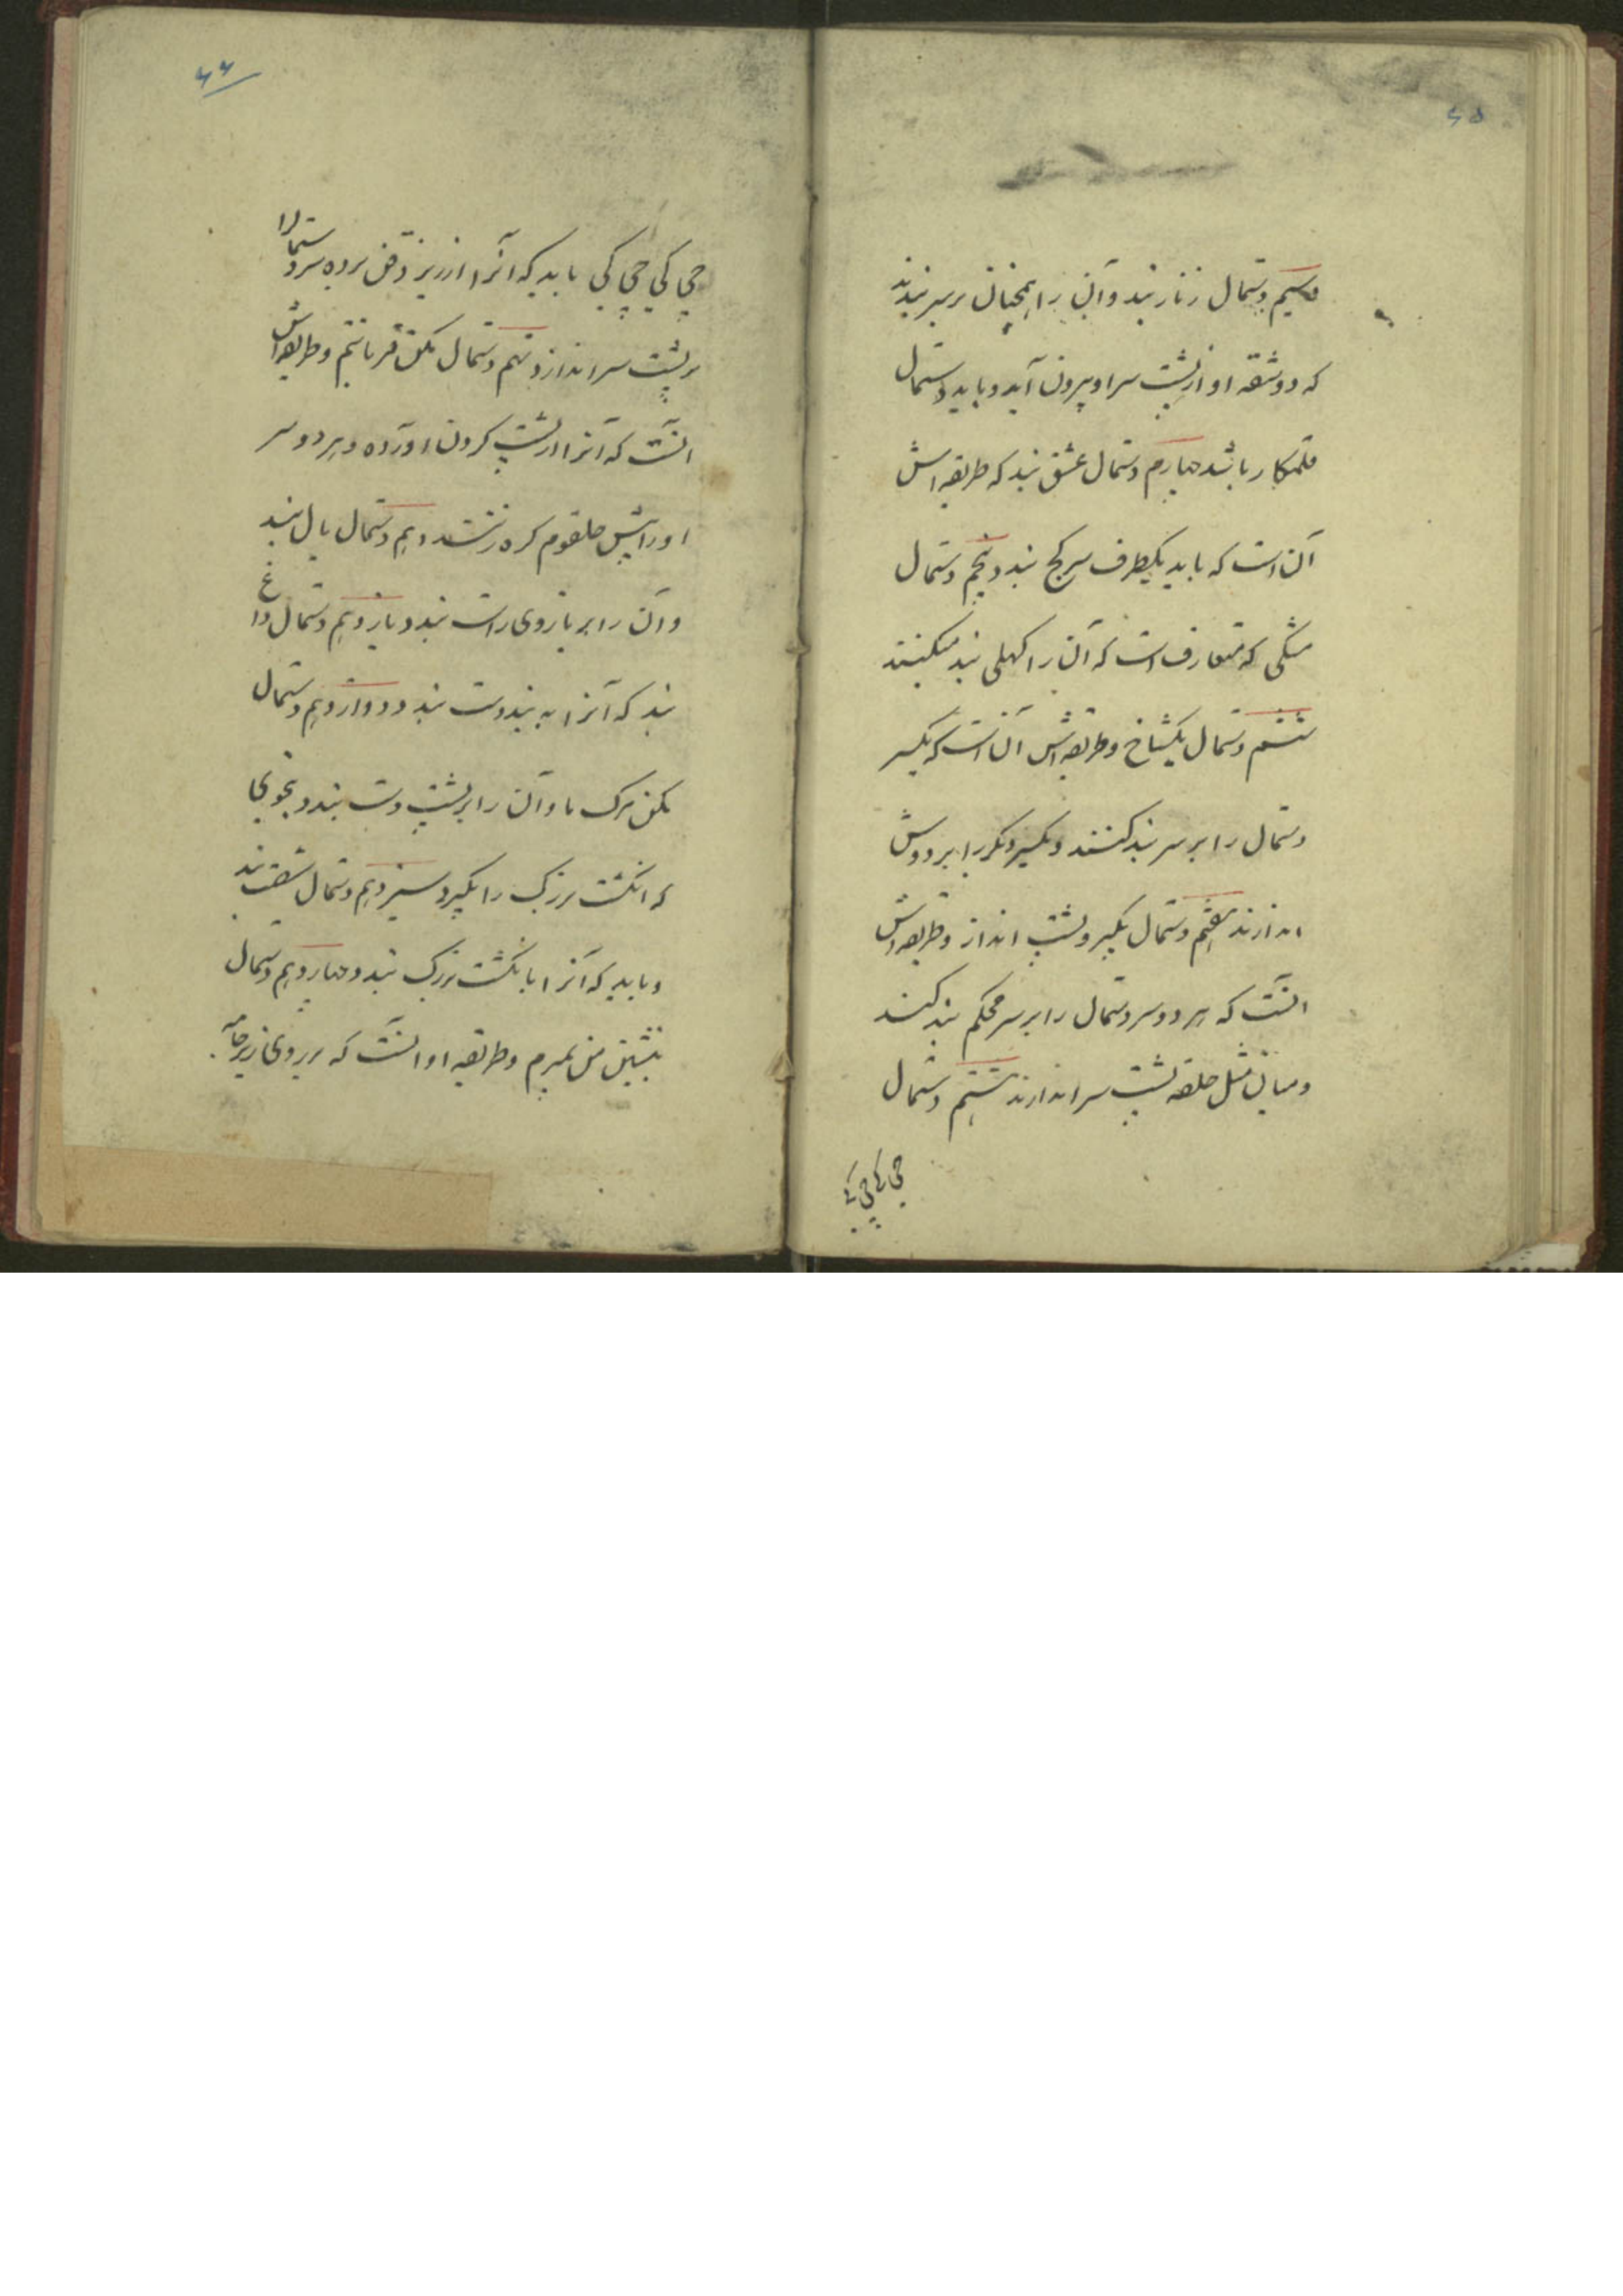 ۶۵
سیم دستمال زنار بند و آن را همچنان بر سر بندند
که دو شقه او از پشت سر او بیرون آید و باید دستمال
قلمکار باشد چهارم دستمال عشق بند که طریقه اش
آن است که باید یکطرف سر کج بندد پنجم دستمال
مشکی که متعارف است که آن را کهلی بند میکنند
ششم دستمال یکشاخ و طریقه اش آن است که یکسر
دستمال را بر سر بند کنند و یکسر دیگر را بر دوش
اندازند هفتم دستمال بگیر و پشت انداز و طریقه اش
انست که هر دو سر دستمال را بر سر محکم بند کنند
و میان مثل حلقه پشت سر اندازند هشتم دستمال
چی کی چی کی
۶۶
چی کی چی کی باید که آنرا از زیر ذقن برده سر دستمال را
بر پشت سر اندازد نهم دستمال بکن قربانتم و طریقه اش
انست که آنرا از پشت کردن اورده و هر دو سر
او را پیش حلقوم کره زنند دهم دستمال بال بند
و آن را بر بازوی راست بندد یازدهم دستمال داغ
بند که آنرا به بند دست بندد دوازدهم دستمال
بکن مرک ما و آن را بر پشت دست بندد بنحوی
که انکشت بزرک را بگیرد سیزدهم دستمال شقه بند
و باید که آنرا بانکشت بزرک بندد چهاردهم دستمال
بنشین من بمیرم و طریقه او انست که بر روی زیر جامه